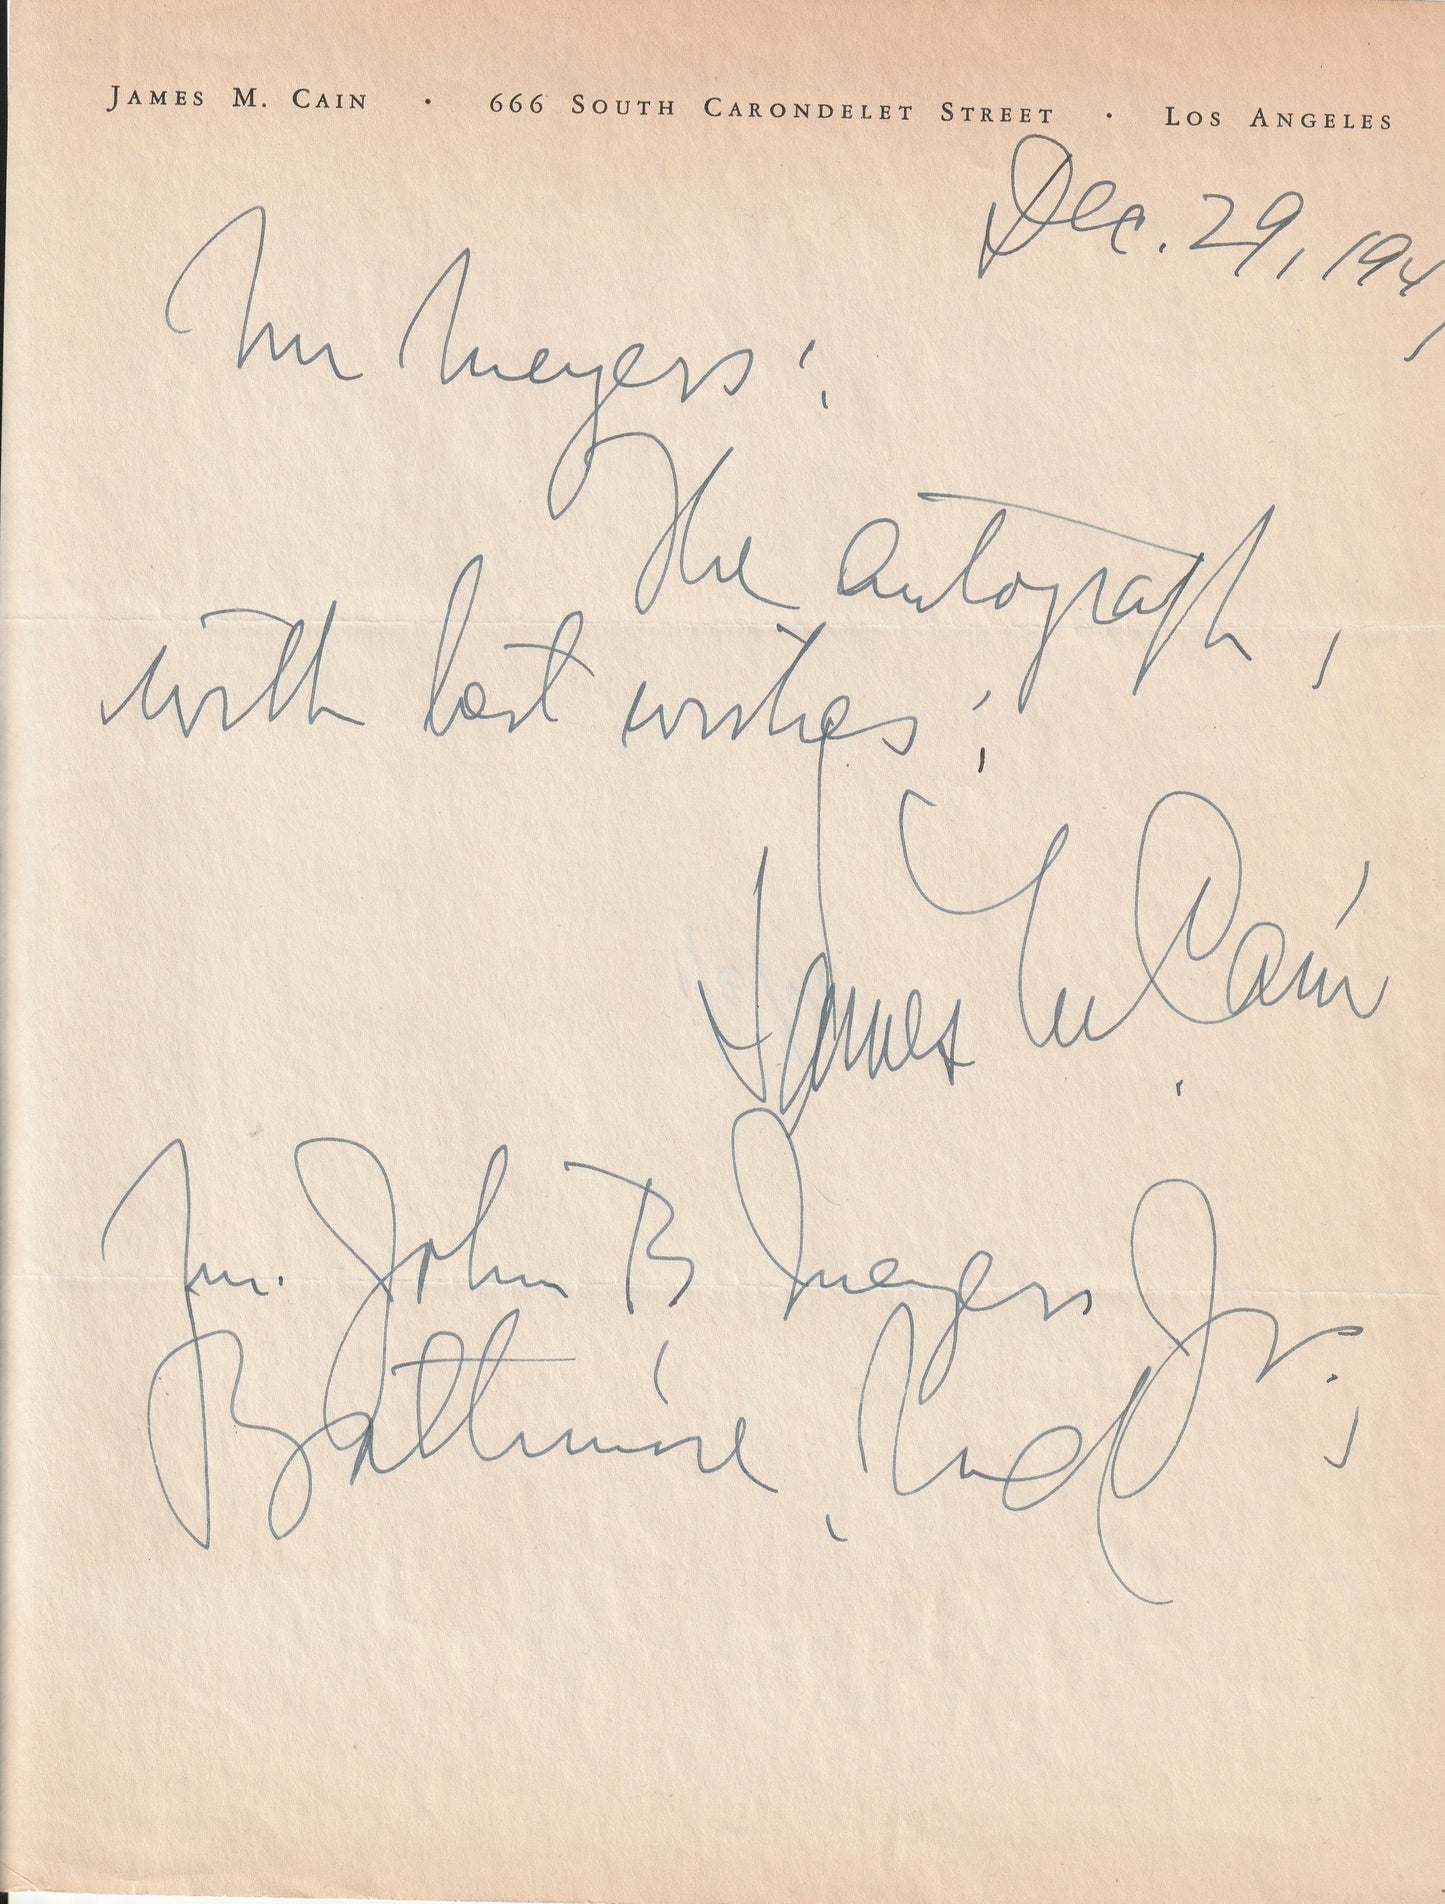 JAMES M. CAIN · 666 SOUTH CARONDELET STREET · LOS ANGELES
Dec. 29,
Mr Meyers:
The autograph,
with best wishes:
James M. Cain
Mr. John B Meyers Jr.,
Baltimore, Md